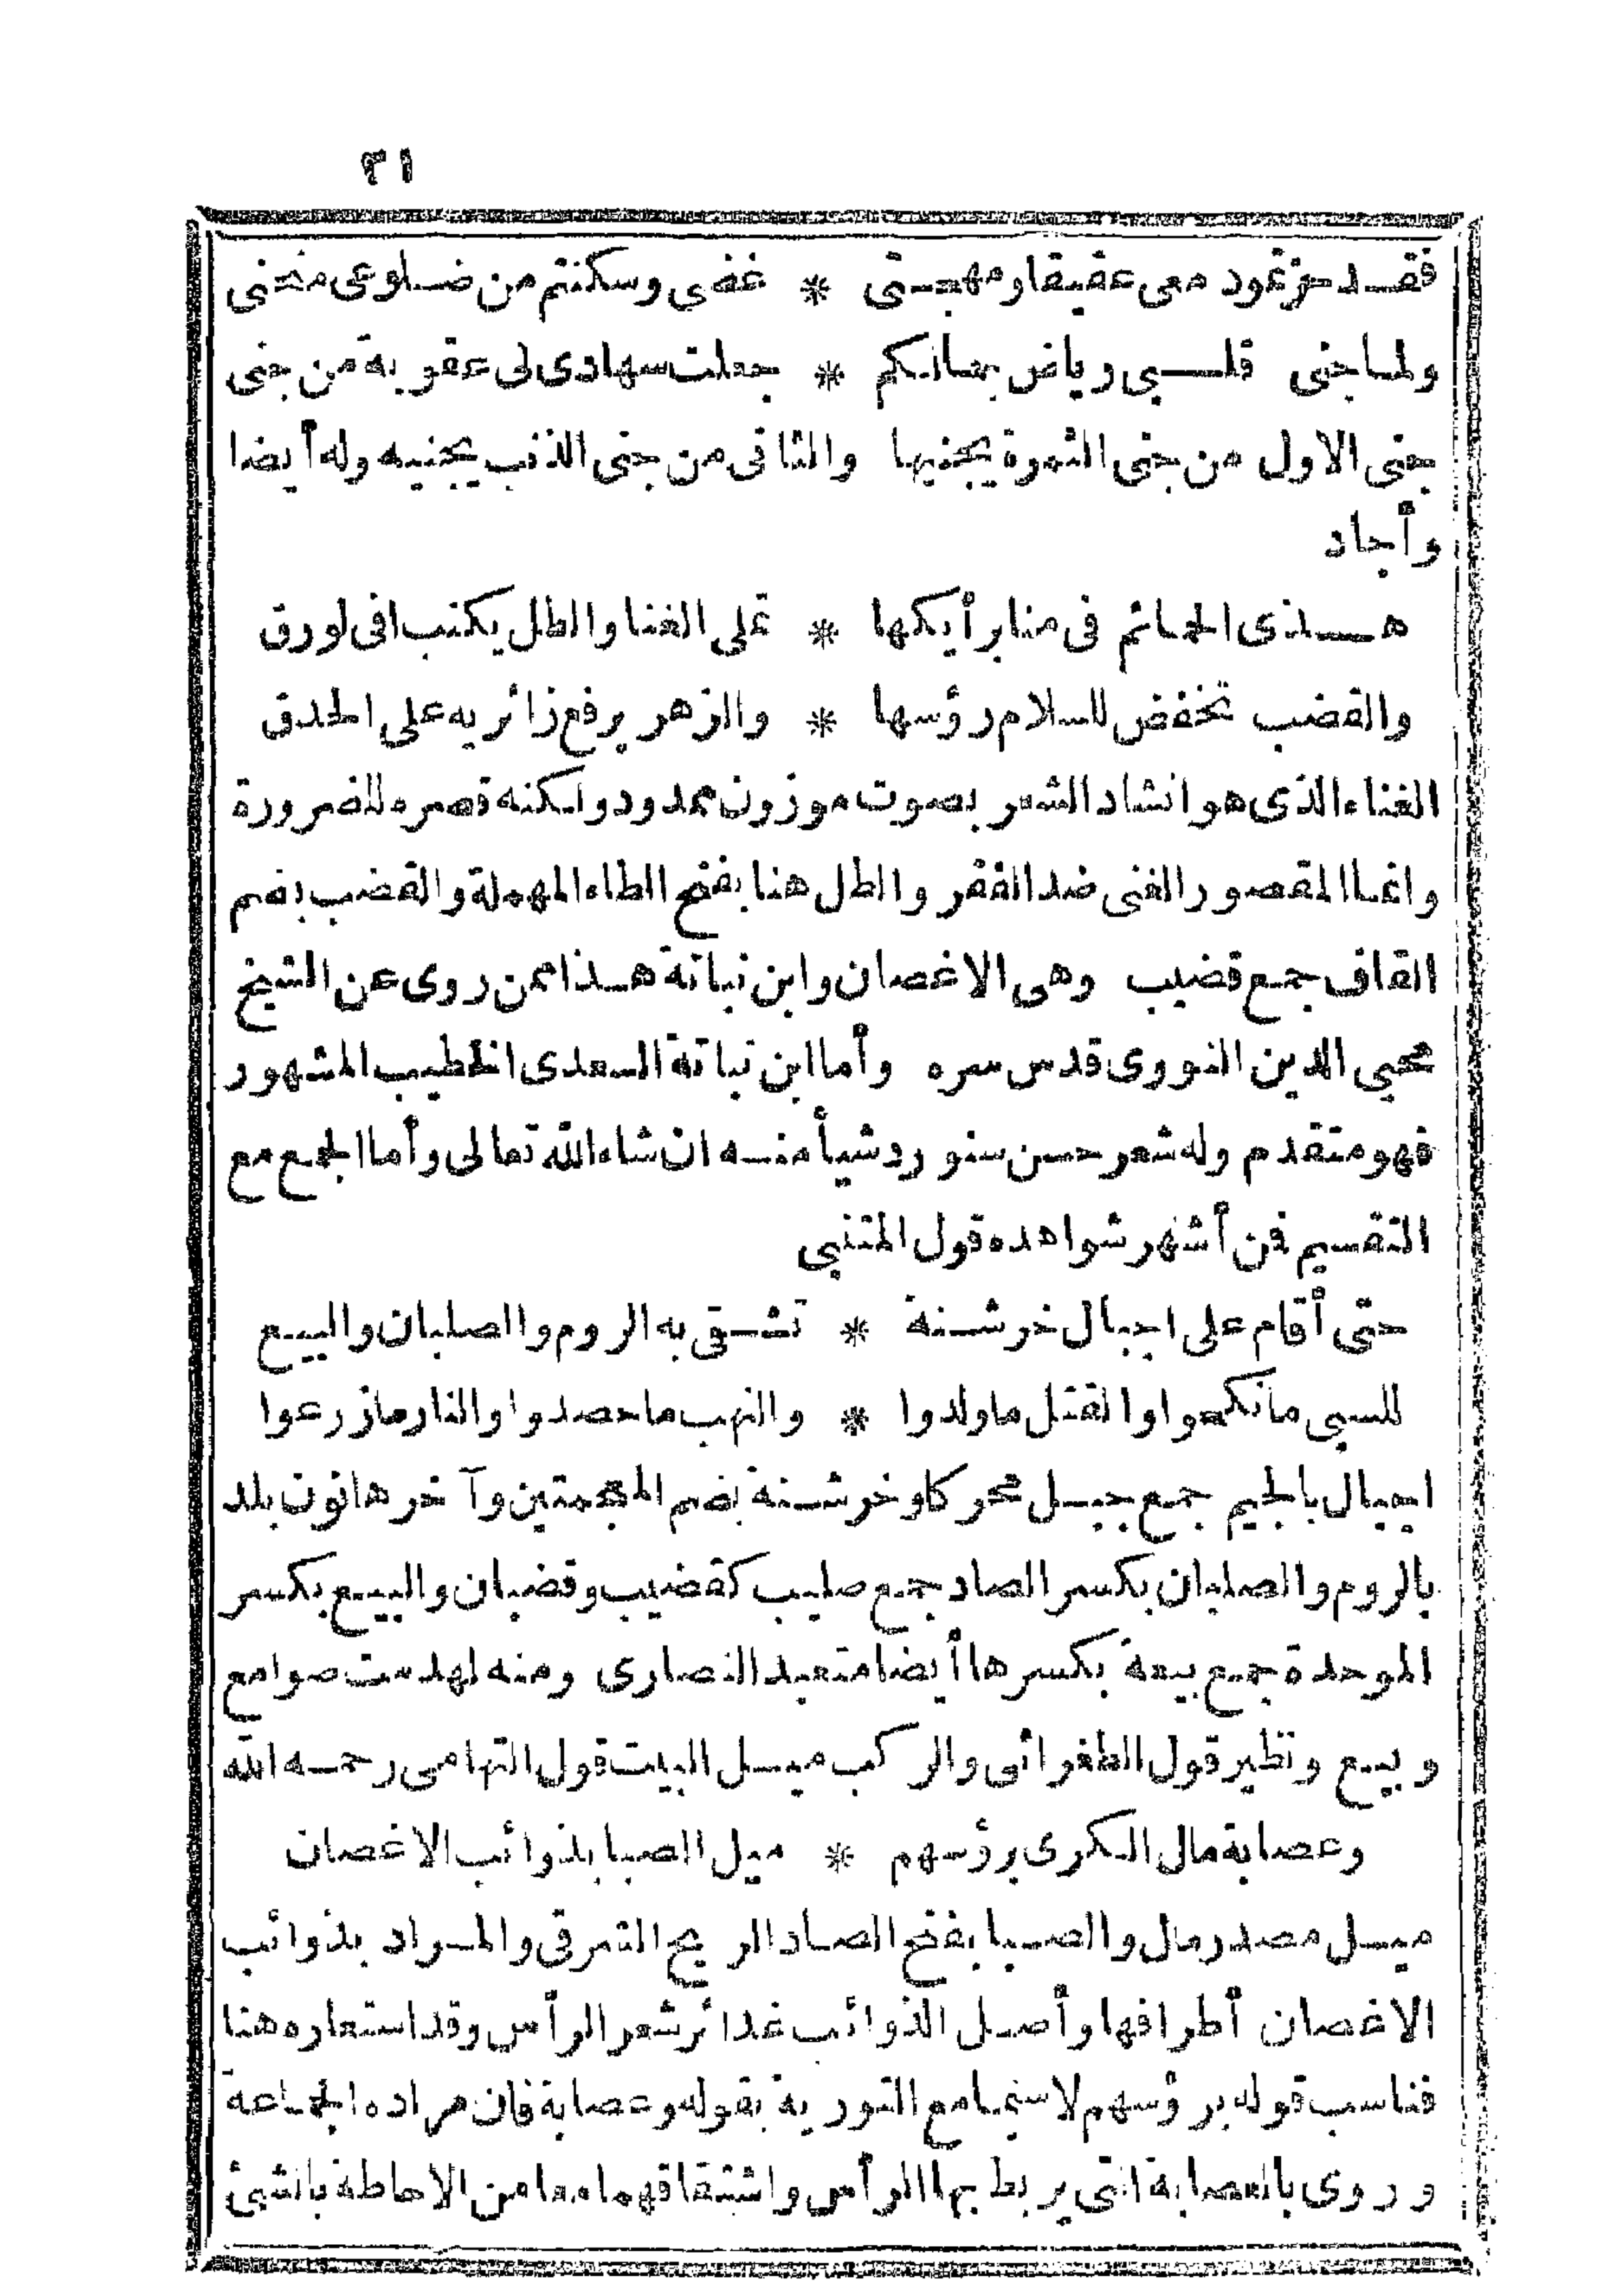 ٣١
فقد حزتمو دمعى عقيقا ومهجتى * غضى وسكنتم من ضلوعى منحنى
ولما جنى قلبى رياض جمالكم * جعلت سهادى لى عقوبة من جنى
جنى الاول من جنى الثمرة يجنيها والثانى من جنى الذنب يجنيه وله أيضا
وأجاد
هذى الحمائم فى منابر أيكها * تملى الغنا والطل يكتب فى لورق
والقضب تخفض للسلام رؤسها * والزهر يرفع زائريه على الحدق
الغناء الذى هو انشاد الشعر بصوت موزون ممدود ولكنه قصره للضرورة
وانما المقصور الغنى ضد الفقر والطل هنا بفتح الطاء المهملة والقضب بضم
القاف جمع قضيب وهى الاغصان وابن نباتة هذا ممن روى عن الشيخ
محيى الدين النووى قدس سره وأما ابن نباتة السعدى الخطيب المشهور
فهو متقدم وله شعر حسن سنورد شيأ منه ان شاء الله تعالى وأما الجمع مع
التقسيم فمن أشهر شواهده قول المتنبى
حتى أقام على اجبال خرشنة * تشقى به الروم والصلبان والبيع
للسبى ما نكحوا والقتل ما ولدوا * والنهب ما حصدوا والنار ما زرعوا
اجبال بالجيم جمع جبل محركا وخرشنة بضم المعجمتين وآخرها نون بلد
بالروم والصلبان بكسر الصاد جمع صليب كقضيب وقضبان والبيع بكسر
الموحدة جمع بيعة بكسرها أيضا متعبد النصارى ومنه لهدمت صوامع
وبيع ونظير قول الطغرائى والركب ميل البيت قول التهامى رحمه الله
وعصابة مال الكرى برؤسهم * ميل الصبا بذوائب الاغصان
ميل مصدر مال والصبا بفتح الصاد الريح الشرقى والمراد بذوائب
الاغصان أطرافها وأصل الذوائب غدائر شعر الرأس وقد استعاره هنا
فناسب قوله برؤسهم لا سيما مع التورية بقوله وعصابة فان مراده الجماعة
وروى بالعصابة التى يربط بها الرأس واشتقاقهما معا من الاحاطة بالشئ